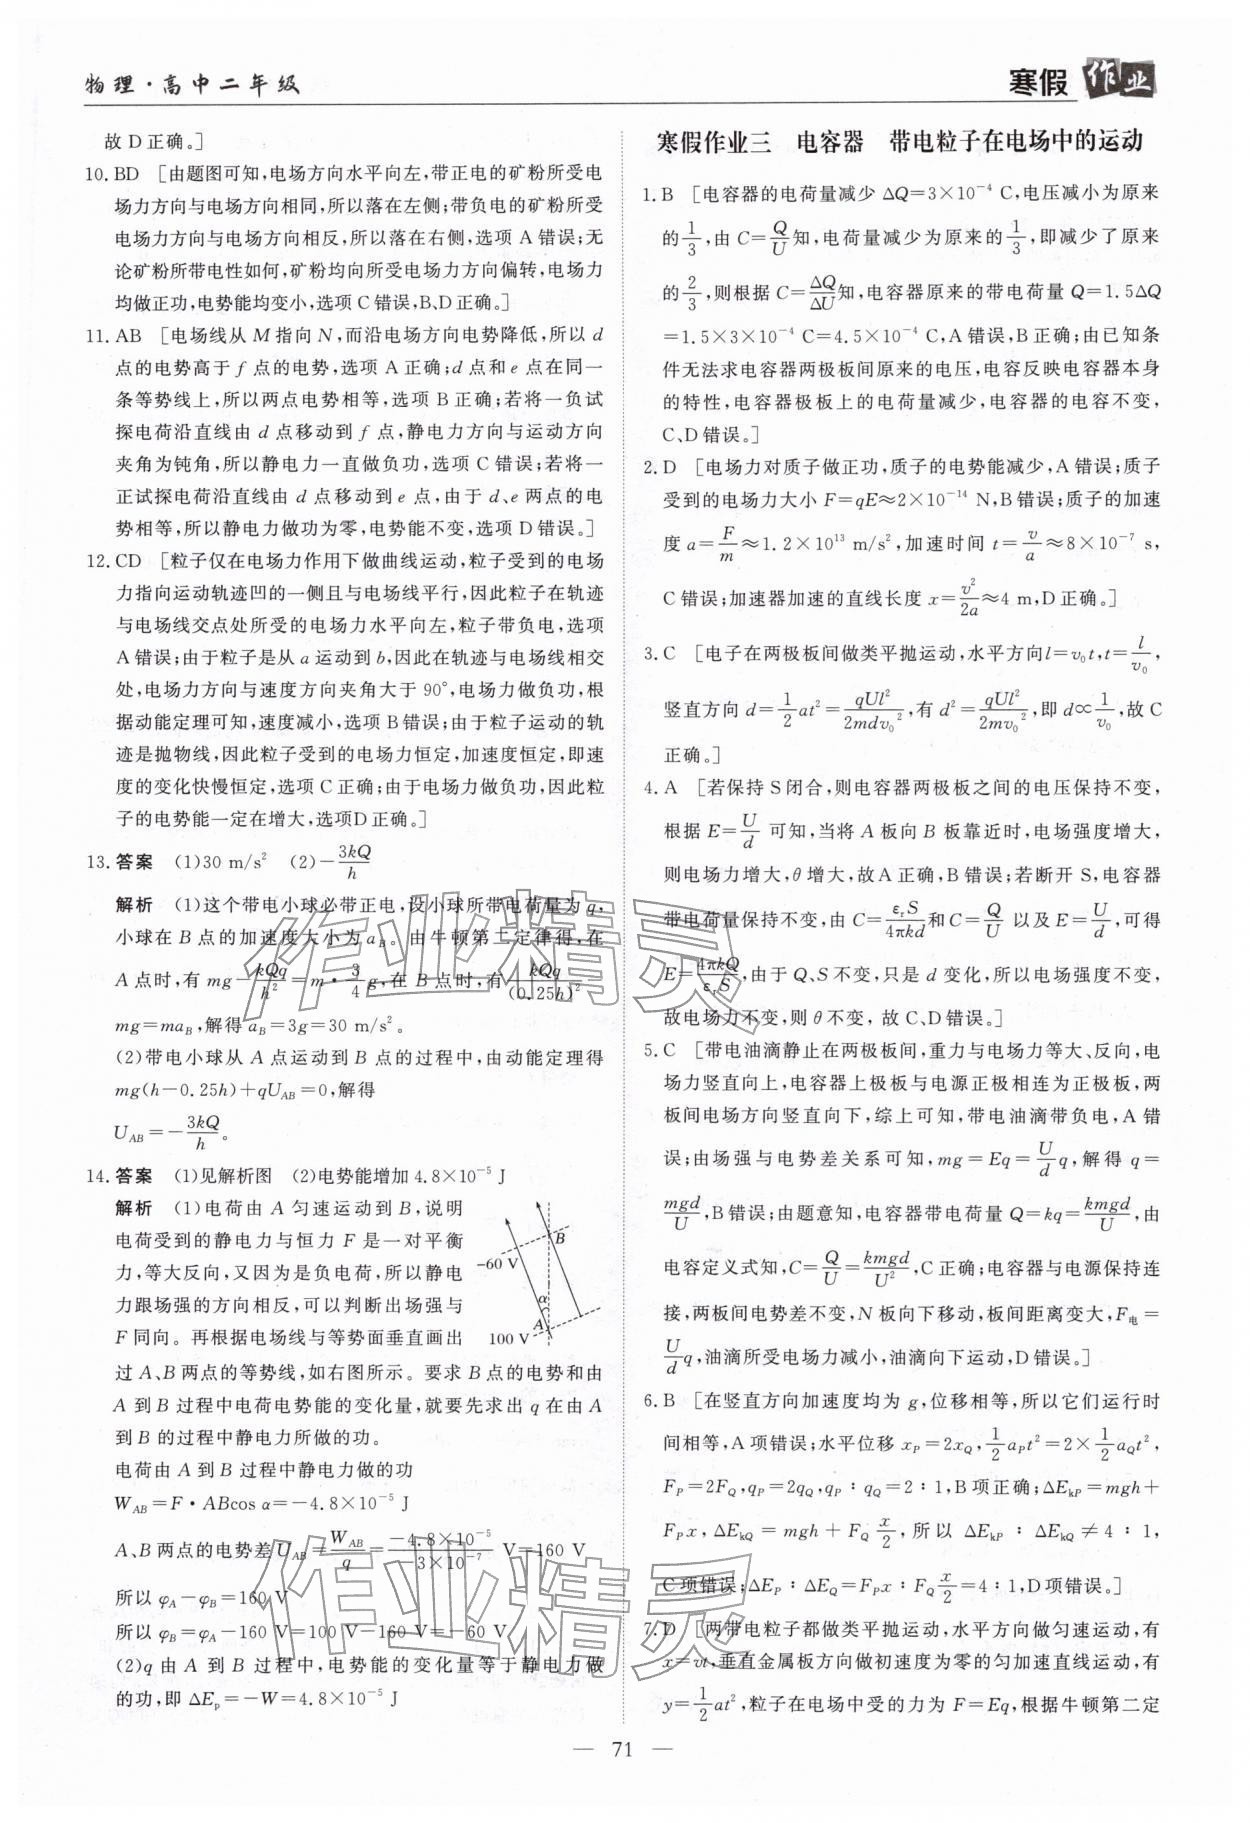 物理·高中二年级
寒假作业
故 D 正确。]
10. BD [由题图可知,电场方向水平向左,带正电的矿粉所受电
场力方向与电场方向相同,所以落在左侧;带负电的矿粉所受
电场力方向与电场方向相反,所以落在右侧,选项 A 错误;无
论矿粉所带电性如何,矿粉均向所受电场力方向偏转,电场力
均做正功,电势能均变小,选项 C 错误,B、D 正确。]
11. AB [电场线从 M 指向 N,而沿电场方向电势降低,所以 d
点的电势高于 f 点的电势,选项 A 正确;d 点和 e 点在同一
条等势线上,所以两点电势相等,选项 B 正确;若将一负试
探电荷沿直线由 d 点移动到 f 点,静电力方向与运动方向
夹角为钝角,所以静电力一直做负功,选项 C 错误;若将一
正试探电荷沿直线由 d 点移动到 e 点,由于 d、e 两点的电
势相等,所以静电力做功为零,电势能不变,选项 D 错误。]
12. CD [粒子仅在电场力作用下做曲线运动,粒子受到的电场
力指向运动轨迹凹的一侧且与电场线平行,因此粒子在轨迹
与电场线交点处所受的电场力水平向左,粒子带负电,选项
A 错误;由于粒子是从 a 运动到 b,因此在轨迹与电场线相交
处,电场力方向与速度方向夹角大于 90°,电场力做负功,根
据动能定理可知,速度减小,选项 B 错误;由于粒子运动的轨
迹是抛物线,因此粒子受到的电场力恒定,加速度恒定,即速
度的变化快慢恒定,选项 C 正确;由于电场力做负功,因此粒
子的电势能一定在增大,选项D 正确。]
13. 答案 (1)30 m/s² (2)-3kQ/h
解析 (1)这个带电小球必带正电,设小球所带电荷量为 q,
小球在 B 点的加速度大小为 a_B。由牛顿第二定律得,在
A 点时,有 mg-kQq/h²=m·3/4 g,在 B 点时,有 kQq/(0.25h)²-
mg=ma_B,解得 a_B=3g=30 m/s²。
(2)带电小球从 A 点运动到 B 点的过程中,由动能定理得
mg(h-0.25h)+qU_AB=0,解得
U_AB=-3kQ/h。
14. 答案 (1)见解析图 (2)电势能增加 4.8×10⁻⁵ J
解析 (1)电荷由 A 匀速运动到 B,说明
电荷受到的静电力与恒力 F 是一对平衡
力,等大反向,又因为是负电荷,所以静电
力跟场强的方向相反,可以判断出场强与
F 同向。再根据电场线与等势面垂直画出
B
-60 V
α
A
100 V
过 A、B 两点的等势线,如右图所示。要求 B 点的电势和由
A 到 B 过程中电荷电势能的变化量,就要先求出 q 在由 A
到 B 的过程中静电力所做的功。
电荷由 A 到 B 过程中静电力做的功
W_AB=F·ABcos α=-4.8×10⁻⁵ J
A、B 两点的电势差 U_AB=W_AB/q=-4.8×10⁻⁵/-3×10⁻⁷ V=160 V
所以 φ_A-φ_B=160 V
所以 φ_B=φ_A-160 V=100 V-160 V=-60 V
(2)q 由 A 到 B 过程中,电势能的变化量等于静电力做
的功,即 ΔE_p=-W=4.8×10⁻⁵ J
寒假作业三 电容器 带电粒子在电场中的运动
1. B [电容器的电荷量减少 ΔQ=3×10⁻⁴ C,电压减小为原来
的 1/3,由 C=Q/U 知,电荷量减少为原来的 1/3,即减少了原来
的 2/3,则根据 C=ΔQ/ΔU 知,电容器原来的带电荷量 Q=1.5ΔQ
=1.5×3×10⁻⁴ C=4.5×10⁻⁴ C,A 错误,B 正确;由已知条
件无法求电容器两极板间原来的电压,电容反映电容器本身
的特性,电容器极板上的电荷量减少,电容器的电容不变,
C、D 错误。]
2. D [电场力对质子做正功,质子的电势能减少,A 错误;质子
受到的电场力大小 F=qE≈2×10⁻¹⁴ N,B 错误;质子的加速
度 a=F/m≈1.2×10¹³ m/s²,加速时间 t=v/a≈8×10⁻⁷ s,
C 错误;加速器加速的直线长度 x=v²/2a≈4 m,D 正确。]
3. C [电子在两极板间做类平抛运动,水平方向 l=v₀t,t=l/v₀,
竖直方向 d=1/2 at²=qUl²/2mdv₀²,有 d²=qUl²/2mv₀²,即 d∝1/v₀,故 C
正确。]
4. A [若保持 S 闭合,则电容器两极板之间的电压保持不变,
根据 E=U/d 可知,当将 A 板向 B 板靠近时,电场强度增大,
则电场力增大,θ 增大,故 A 正确,B 错误;若断开 S,电容器
带电荷量保持不变,由 C=εᵣS/4πkd 和 C=Q/U 以及 E=U/d,可得
E=4πkQ/εᵣS,由于 Q、S 不变,只是 d 变化,所以电场强度不变,
故电场力不变,则 θ 不变,故 C、D 错误。]
5. C [带电油滴静止在两极板间,重力与电场力等大、反向,电
场力竖直向上,电容器上极板与电源正极相连为正极板,两
板间电场方向竖直向下,综上可知,带电油滴带负电,A 错
误;由场强与电势差关系可知,mg=Eq=U/d q,解得 q=
mgd/U,B 错误;由题意知,电容器带电荷量 Q=kq=kmgd/U,由
电容定义式知,C=Q/U=kmgd/U²,C 正确;电容器与电源保持连
接,两板间电势差不变,N 板向下移动,板间距离变大,F电=
U/d q,油滴所受电场力减小,油滴向下运动,D 错误。]
6. B [在竖直方向加速度均为 g,位移相等,所以它们运行时
间相等,A 项错误;水平位移 x_P=2x_Q,1/2 a_Pt²=2×1/2 a_Qt²,
F_P=2F_Q,q_P=2q_Q,q_P∶q_Q=2∶1,B 项正确;ΔE_kP=mgh+
F_Px,ΔE_kQ=mgh+F_Q x/2,所以 ΔE_kP∶ΔE_kQ≠4∶1,
C 项错误;ΔE_P∶ΔE_Q=F_Px∶F_Q x/2=4∶1,D项错误。]
7. D [两带电粒子都做类平抛运动,水平方向做匀速运动,有
x=vt,垂直金属板方向做初速度为零的匀加速直线运动,有
y=1/2 at²,粒子在电场中受的力为 F=Eq,根据牛顿第二定
— 71 —
作业精灵
作业精灵